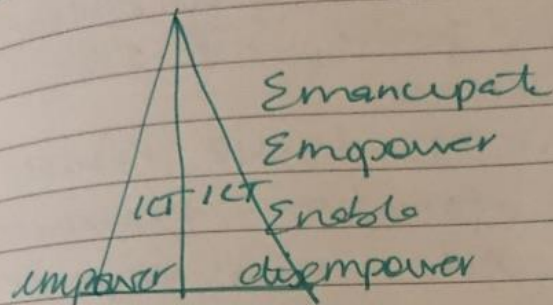 Emancipate
Empower
ICT ICT
Enable
empower disempower